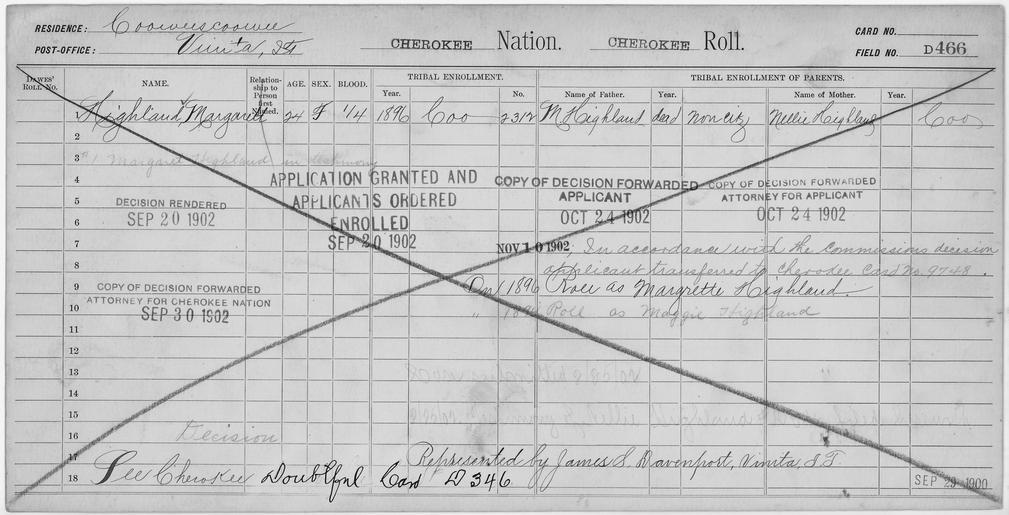 RESIDENCE: Coowescoowee
POST-OFFICE: Vinita, I.T.
CHEROKEE Nation. CHEROKEE Roll.
CARD NO.
FIELD NO. D466
DAWES' ROLL NO. NAME. Relationship to Person first Named. AGE. SEX. BLOOD. TRIBAL ENROLLMENT. Year. No. TRIBAL ENROLLMENT OF PARENTS. Name of Father. Year. Name of Mother. Year.
Highland, Margarett 24 F 1/4 1896 Coo 2312 M Highland dead Non citz Nellie Highland Coo
2
3 #1 Margaret Highland in testimony
4
5
6
7
8
9
10
11
12
13
14
15
16
17
18
APPLICATION GRANTED AND
APPLICANTS ORDERED
ENROLLED
SEP 20 1902
COPY OF DECISION FORWARDED
APPLICANT
OCT 24 1902
COPY OF DECISION FORWARDED
ATTORNEY FOR APPLICANT
OCT 24 1902
DECISION RENDERED
SEP 20 1902
NOV 10 1902, In accordance with the Commissions decision
applicant transferred to Cherokee Card No. 9748.
COPY OF DECISION FORWARDED
ATTORNEY FOR CHEROKEE NATION
SEP 30 1902
On 1896 Roll as Margrette Highland.
" Roll as Maggie Highland
Decision
Represented by James S. Davenport, Vinita, I.T.
See Cherokee Doubtful Card D346
SEP 29 1900